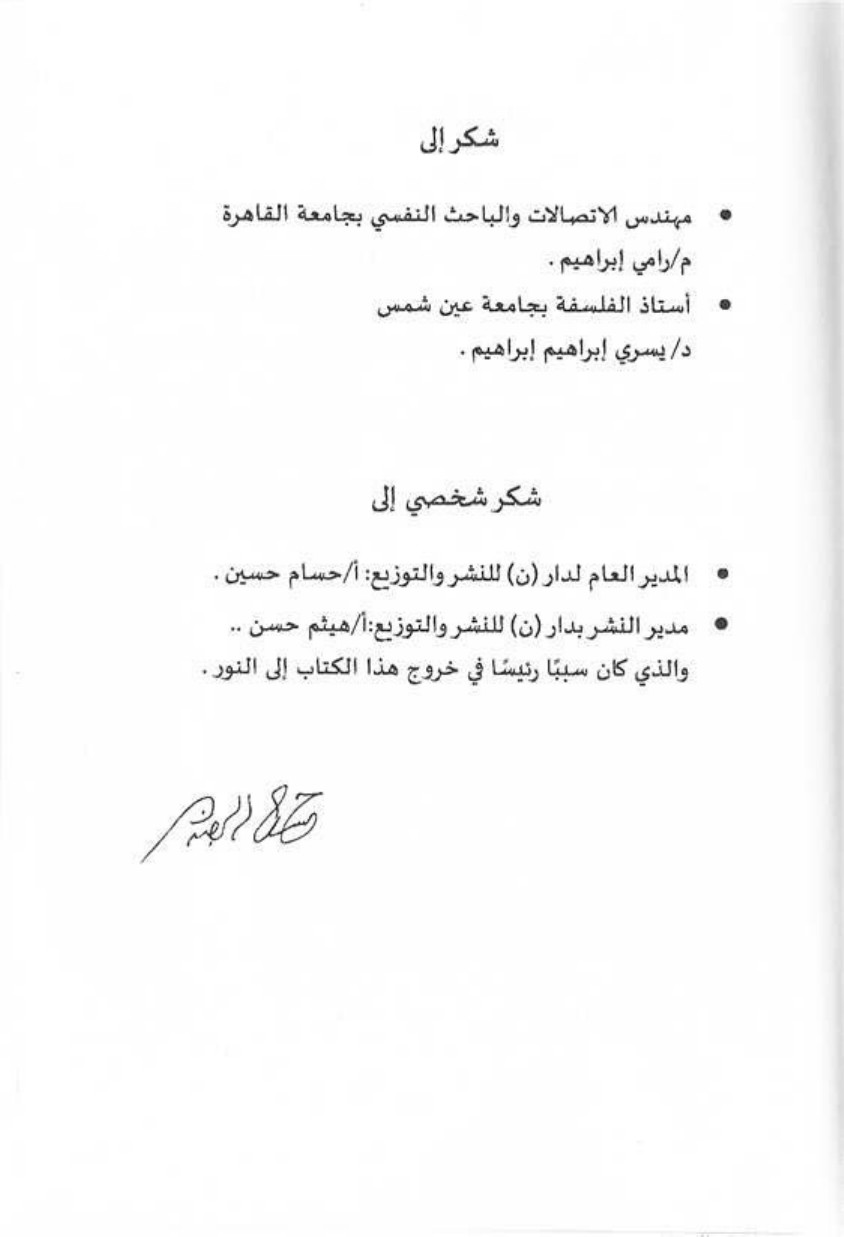 شكر إلى
• مهندس الاتصالات والباحث النفسي بجامعة القاهرة
م/رامي إبراهيم .
• أستاذ الفلسفة بجامعة عين شمس
د/ يسري إبراهيم إبراهيم .
شكر شخصي إلى
• المدير العام لدار (ن) للنشر والتوزيع: أ/حسام حسين .
• مدير النشر بدار (ن) للنشر والتوزيع:أ/هيثم حسن ..
والذي كان سببًا رئيسًا في خروج هذا الكتاب إلى النور .